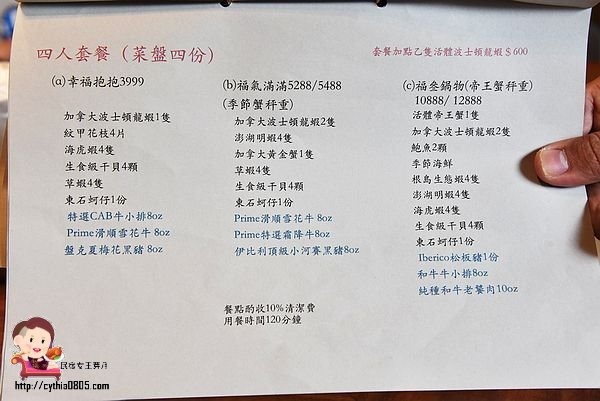 四人套餐（菜盤四份）
套餐加點乙隻活體波士頓龍蝦＄600
(a)幸福抱抱3999
加拿大波士頓龍蝦1隻
紋甲花枝4片
海虎蝦4隻
生食級干貝4顆
草蝦4隻
東石蚵仔1份
特選CAB牛小排8oz
Prime滑順雪花牛8oz
盤克夏梅花黑豬 8oz
(b)福氣滿滿5288/5488
(季節蟹秤重)
加拿大波士頓龍蝦2隻
澎湖明蝦4隻
加拿大黃金蟹1隻
草蝦4隻
生食級干貝4顆
東石蚵仔1份
Prime滑順雪花牛 8oz
Prime特選霜降牛8oz
伊比利頂級小河賽黑豬8oz
(c)福叁鍋物(帝王蟹秤重)
10888/ 12888
活體帝王蟹1隻
加拿大波士頓龍蝦2隻
鮑魚2顆
季節海鮮
根島生態蝦4隻
澎湖明蝦4隻
海虎蝦4隻
生食級干貝4顆
東石蚵仔1份
Iberico松板豬1份
和牛牛小排8oz
純種和牛老饕肉10oz
餐點酌收10%清潔費
用餐時間120分鐘
民宿女王芽月
http://cythia0805.com